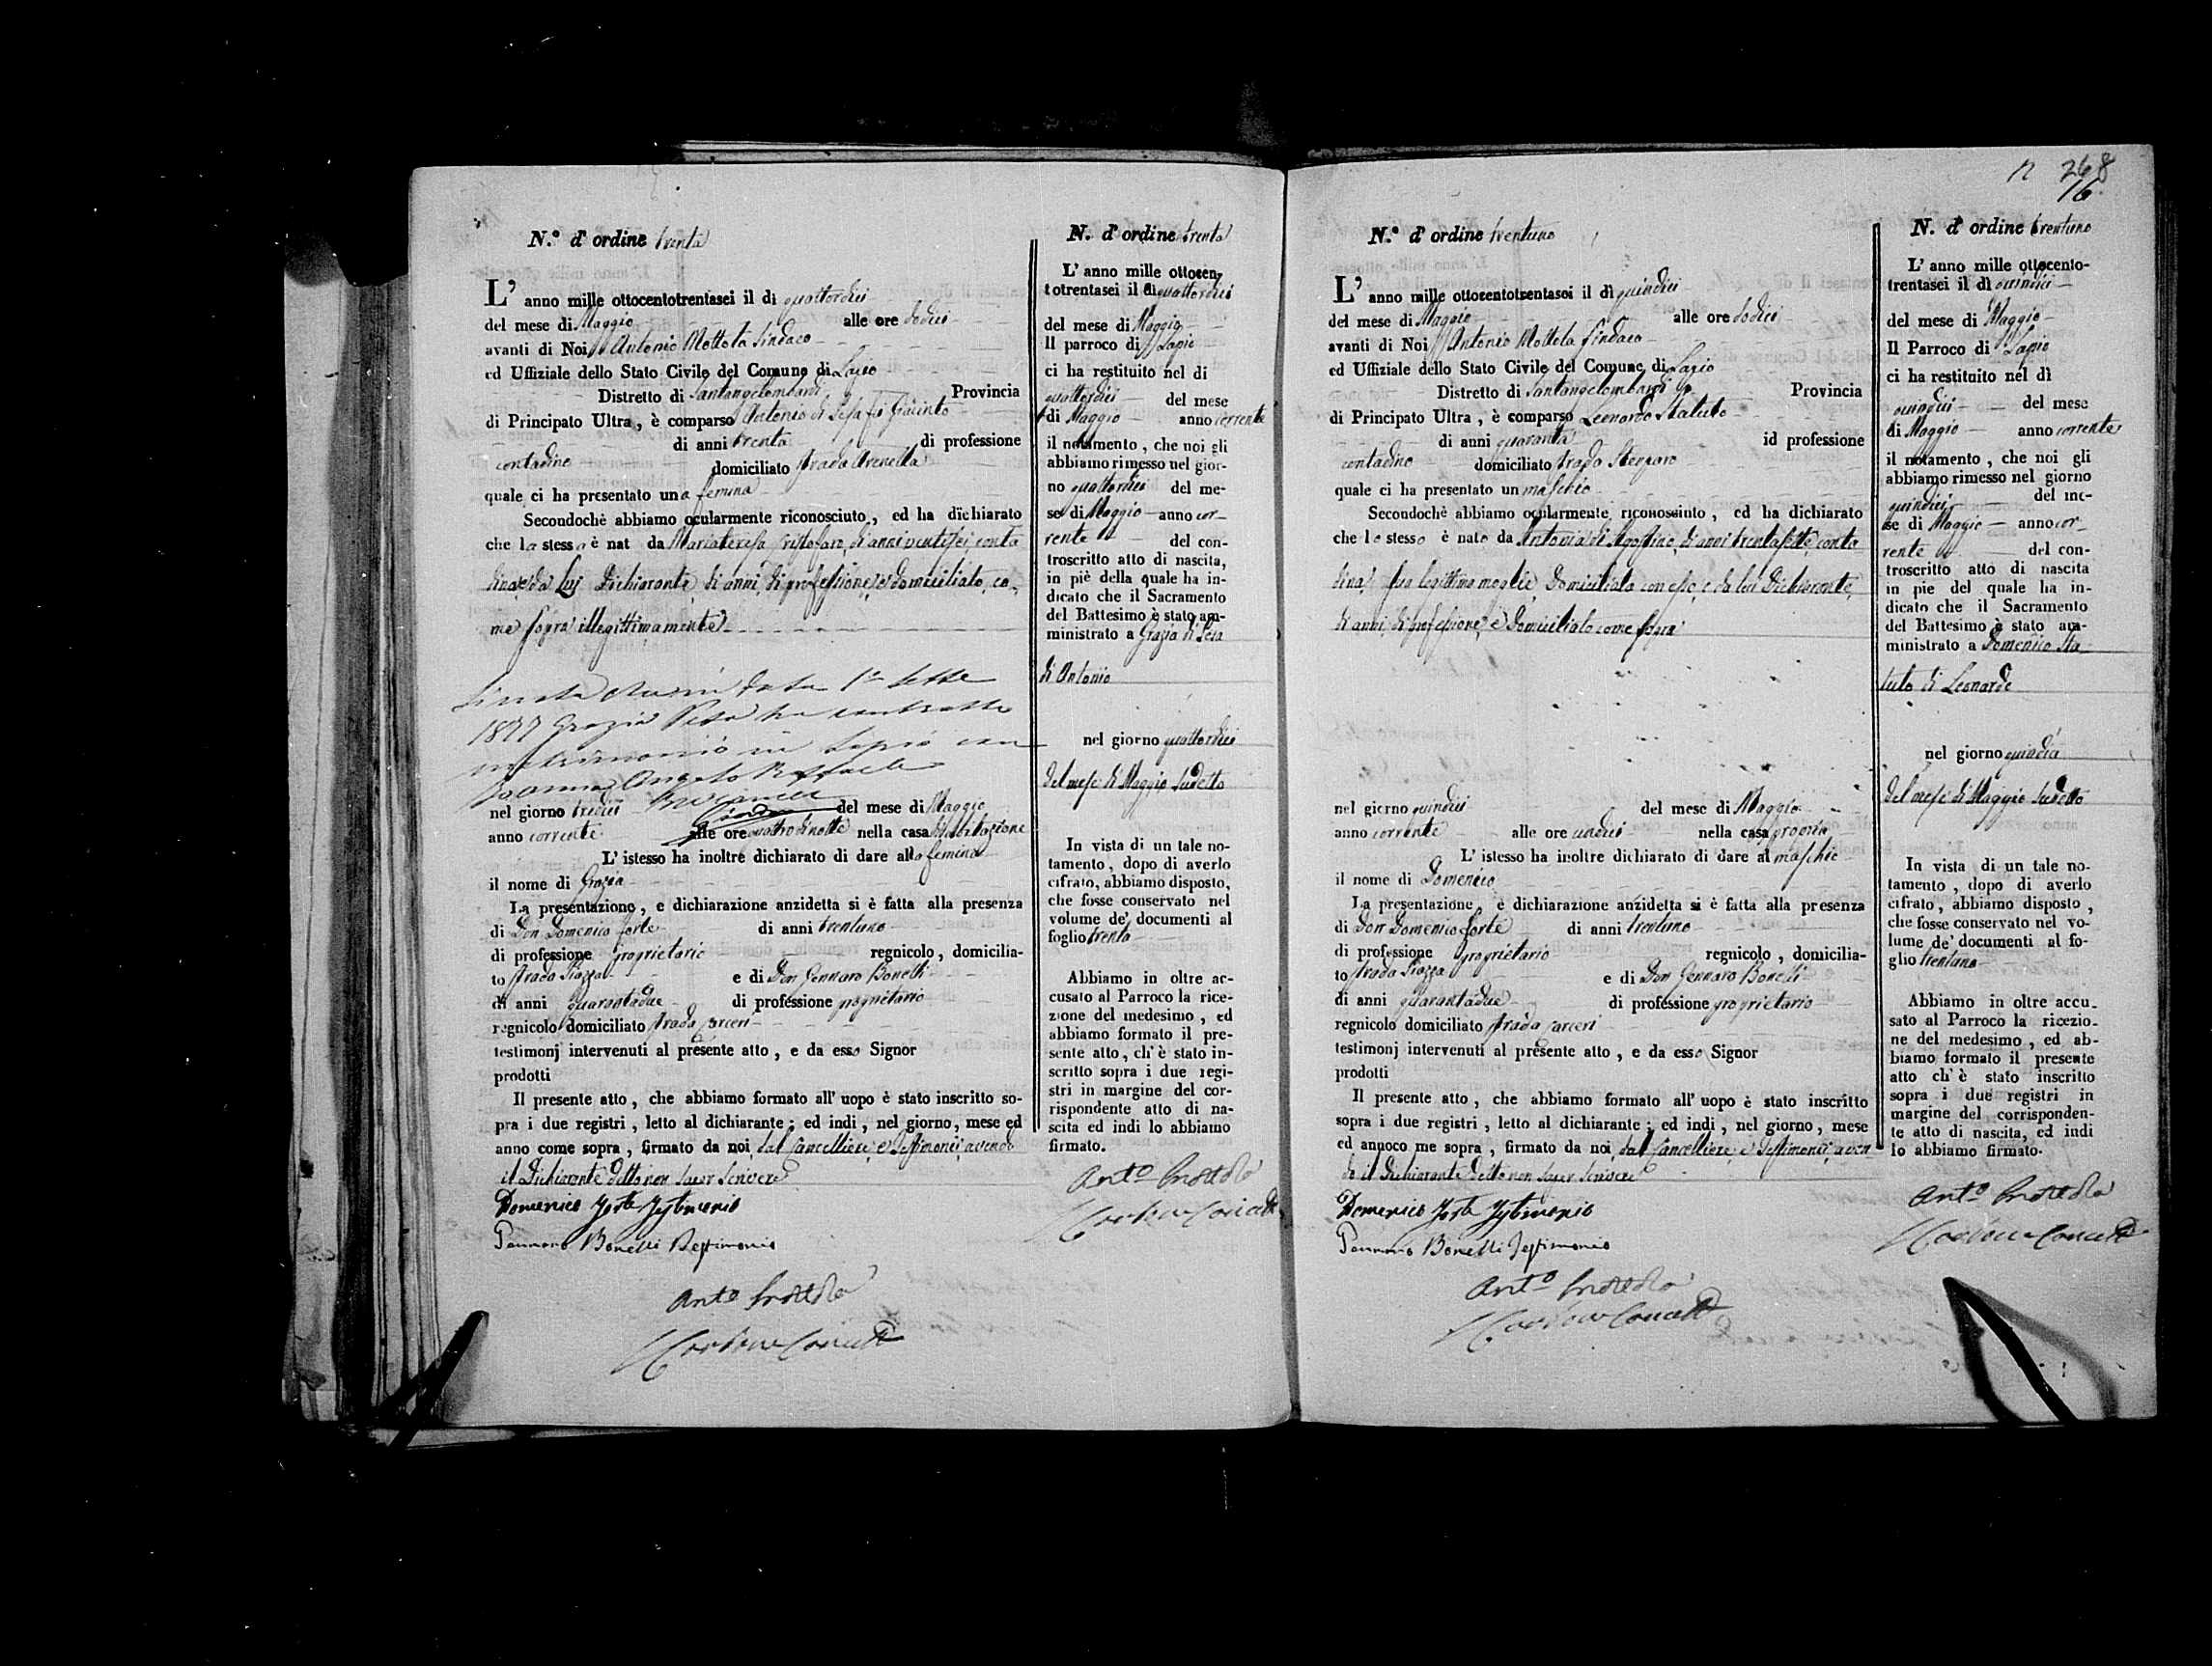 N.º d' ordine trenta
L' anno mille ottocentotrentasei il dì quattordici
del mese di Maggio alle ore dodici
avanti di Noi Antonio Mottola Sindaco
ed Uffiziale dello Stato Civile del Comune di Lapio
Distretto di Santangelombardi Provincia
di Principato Ultra, è comparso Antonio di Pesa fu Giacinto
di anni trenta di professione
contadino domiciliato strada Arenella
quale ci ha presentato una femina
Secondochè abbiamo ocularmente riconosciuto, ed ha dichiarato
che la stessa è nat da Mariateresa Cristofaro, di anni ventisei, conta
dina, e da Lui Dichiarante, di anni, di professione, e domiciliato, co-
me sopra illegittimamente
1877 Grazia Pesa ha contratto
matrimonio in Lapio con
Angelo Raffaele
nel giorno tredici del mese di Maggio
anno corrente alle ore quattro di notte nella casa di abitazione
L' istesso ha inoltre dichiarato di dare alla femina
il nome di Grazia
La presentazione, e dichiarazione anzidetta si è fatta alla presenza
di Don Domenico Forte di anni trentuno
di professione proprietario regnicolo, domicilia-
to strada Piazza e di Don Gennaro Bonelli
di anni quarantadue di professione proprietario
regnicolo domiciliato strada Carceri
testimonj intervenuti al presente atto, e da esso Signor
prodotti
Il presente atto, che abbiamo formato all' uopo è stato inscritto so-
pra i due registri, letto al dichiarante; ed indi, nel giorno, mese ed
anno come sopra, firmato da noi, dal Cancelliere, e Testimonii, avendo
il Dichiarante detto non saper scrivere
Domenico Forte Testimonio
Gennaro Bonelli Testimonio
Ant.º Mottola
N. d' ordine trenta
L' anno mille ottocen-
totrentasei il dì quattordici
del mese di Maggio
Il parroco di Lapio
ci ha restituito nel dì
quattordici del mese
di Maggio anno corrente
il notamento, che noi gli
abbiamo rimesso nel gior-
no quattordici del me-
se di Maggio anno cor-
rente del con-
troscritto atto di nascita,
in piè della quale ha in-
dicato che il Sacramento
del Battesimo è stato am-
ministrato a Grazia di Pesa
di Antonio
nel giorno quattordici
del mese di Maggio sudetto
In vista di un tale no-
tamento, dopo di averlo
cifrato, abbiamo disposto,
che fosse conservato nel
volume de' documenti al
foglio trenta
Abbiamo in oltre ac-
cusato al Parroco la rice-
zione del medesimo, ed
abbiamo formato il pre-
sente atto, ch' è stato in-
scritto sopra i due regi-
stri in margine del cor-
rispondente atto di na-
scita ed indi lo abbiamo
firmato.
Ant.º Mottola
268
16
N.º d' ordine trentuno
L' anno mille ottocentotrentasei il dì quindici
del mese di Maggio alle ore dodici
avanti di Noi Antonio Mottola Sindaco
ed Uffiziale dello Stato Civile del Comune di Lapio
Distretto di Santangelombardi Provincia
di Principato Ultra, è comparso Leonardo Statuto
di anni quaranta id professione
contadino domiciliato strada
quale ci ha presentato un maschio
Secondochè abbiamo ocularmente riconosciuto, ed ha dichiarato
che lo stesso è nato da Antonia di Agostino, di anni trentasette conta
dina, sua legittima moglie, domiciliata con esso, e da lui Dichiarante,
di anni, di professione, e domiciliato come sopra
nel giorno quindici del mese di Maggio
anno corrente alle ore undici nella casa propria
L' istesso ha inoltre dichiarato di dare al maschio
il nome di Domenico
La presentazione, e dichiarazione anzidetta si è fatta alla presenza
di Don Domenico Forte di anni trentuno
di professione proprietario regnicolo, domicilia-
to strada Piazza e di Don Gennaro Bonelli
di anni quarantadue di professione proprietario
regnicolo domiciliato strada Carceri
testimonj intervenuti al presente atto, e da esso Signor
prodotti
Il presente atto, che abbiamo formato all' uopo è stato inscritto
sopra i due registri, letto al dichiarante; ed indi, nel giorno, mese
ed annoco me sopra, firmato da noi, dal Cancelliere, e Testimonii, aven-
do il Dichiarante detto non saper scrivere
Domenico Forte Testimonio
Gennaro Bonelli Testimonio
Ant.º Mottola
N. d' ordine trentuno
L' anno mille ottocento-
trentasei il dì quindici
del mese di Maggio
Il Parroco di Lapio
ci ha restituito nel dì
quindici del mese
di Maggio anno corrente
il notamento, che noi gli
abbiamo rimesso nel giorno
quindici del me-
se di Maggio anno cor-
rente del con-
troscritto atto di nascita
in pie del quale ha in-
dicato che il Sacramento
del Battesimo è stato am-
ministrato a Domenico Sta-
tuto di Leonardo
nel giorno quindici
del mese di Maggio sudetto
In vista di un tale no-
tamento, dopo di averlo
cifrato, abbiamo disposto,
che fosse conservato nel vo-
lume de' documenti al fo-
glio trentuno
Abbiamo in oltre accu-
sato al Parroco la ricezio-
ne del medesimo, ed ab-
biamo formato il presente
atto ch' è stato inscritto
sopra i due registri in
margine del corrisponden-
te atto di nascita, ed indi
lo abbiamo firmato.
Ant.º Mottola